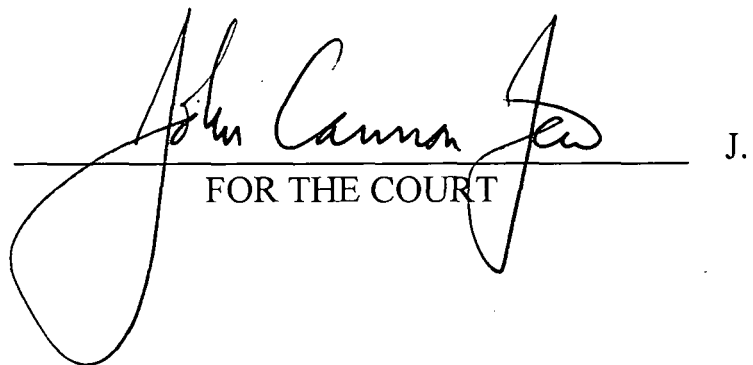 John Cannon Few J.
FOR THE COURT